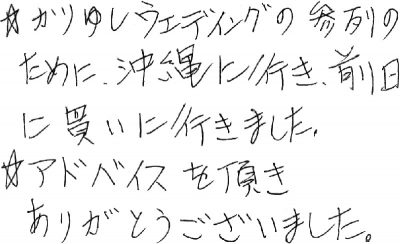 ☆かりゆしウェディングの参列の
ために、沖縄に行き、前日
に買いに行きました。
☆アドバイスを頂き
ありがとうございました。